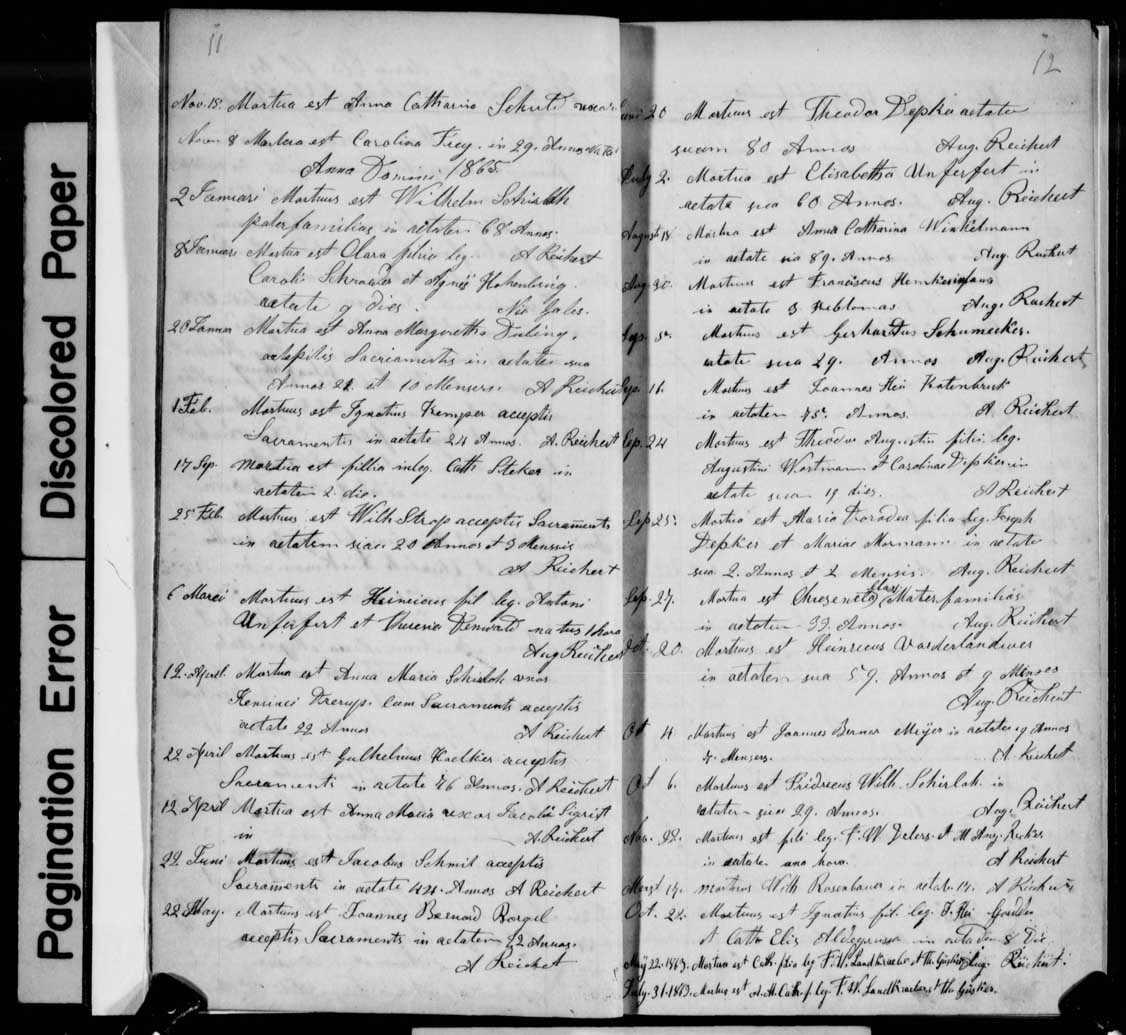 Discolored Paper
Pagination Error
11
Nov. 15. Mortua est Anna Catharina
Nov. 8 Mortua est Carolina Frey. in 29. Annos
Anna Domini 1865.
2 Januari Mortuus est Wilhelm
paterfamilias in aetaten 68 Annos.
8 Januari Mortua est Clara filia leg. A Reichert
Caroli Schroader et Agnes
aetate 9 dies.
20 Mortua est Anna Margaretha
Sacriamentis in aetaten sua
Annos 21. et 10 Mensers. A Reichert
1 Feb. Mortuus est Ignatius Kemper acceptis
Sacramentis in aetate 24 Annos. A. Reichert
17 Sep. Mortua est fillia inleg. Cath Stoker in
aetaten 2. die.
25 Feb. Mortuus est Wilh Strop acceptis Sacraments
in aetatem suae 20 Annos et 3 Menssis
A Reichert
6 Marci Mortuus est Heinricus fil leg. Antoni
Unferfert et Theresia natus 1 hora
Aug Reichert
12. April Mortua est Anna Maria
cum Sacraments acceptis
aetate 22 Annos A Reichert
22 April Mortuus est Gulhelmus Koelker acceptis
Sacramenti in aetate 46 Annos. A Reichert
12 April Mortua est Anna Maria uxor Jacobi Sigrist
in A Reichert
22 Juni Mortuus est Jacobus Schmil acceptis
Sacraments in aetate 42. Annos A Reichert
22 May. Mortuus est Joannes Bernard Borgel
acceptis Sacraments in aetatem 12 Annos.
A Reichert
12
20 Mortuus est Theodor Depka aetate
suam 80 Annos Aug. Reichert
July 2. Mortua est Elisabetha Unferfert in
aetate sua 60 Annos. Aug. Reichert
August 18 Mortua est Anna Catharina Winkelmann
in aetate sua 89. Annos Aug. Reichert
Aug. 30. Mortuus est Franciscus
in aetate 3 Heblomas Aug. Reichert
Sep. 5. Mortuus est Gerhardus Schumecker.
aetate sua 29. Annos Aug. Reichert
Sep. 16. Mortuus est Joannes Hen Katenbruk
in aetaten 45. Annos. A Reichert
Sep. 24 Mortuus est Theodor Augustin filii leg.
Augustini Wortmann et Carolinae Depker in
aetate suae 19 dies. A Reichert
Sep 25. Mortua est Maria Dorodea filia leg. Joseph
Depker et Mariae Mormann in aetate
sua 2. Annos et 2 Mensis. Aug. Reichert
Sep. 27. Mortua est Mater familias
in aetaten 33. Annos. Aug. Reichert
Oct. 20. Mortuus est Heinricus Vorderlandwer
in aetaten sua 59. Annos et 9 Menses
Aug. Reichert
Oct 4. Mortuus est Joannes Bernar Meijer in aetate 19 Annos
4. Mensers. A Reichert
Oct 6. Mortuus est Fridricus Wilh. in
aetaten suae 29. Annos. Aug. Reichert
Nov. 22. Mortuus est fili leg. F. W. Peters. et M Aug.
in aetate una hora. A Reichert
19. mortuus Wilh Rosenbauer in aetate. 19. A Reichert
Oct. 22. Mortuus est Ignatius fil. leg. J. Hen
et Cath Elis in aetaten 8 Die
May 22. 1863. Mortua est Cath. filia leg F. W. Landkraeler et Aug. Reichert.
July. 31. 1863. Mortua est A. M. Cath. f. leg. F. W. Landkraeler et